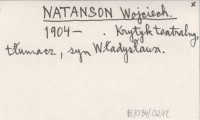 NATANSON Wojciech.
1904 – . Krytyk teatralny,
tłumacz, syn Władysława.